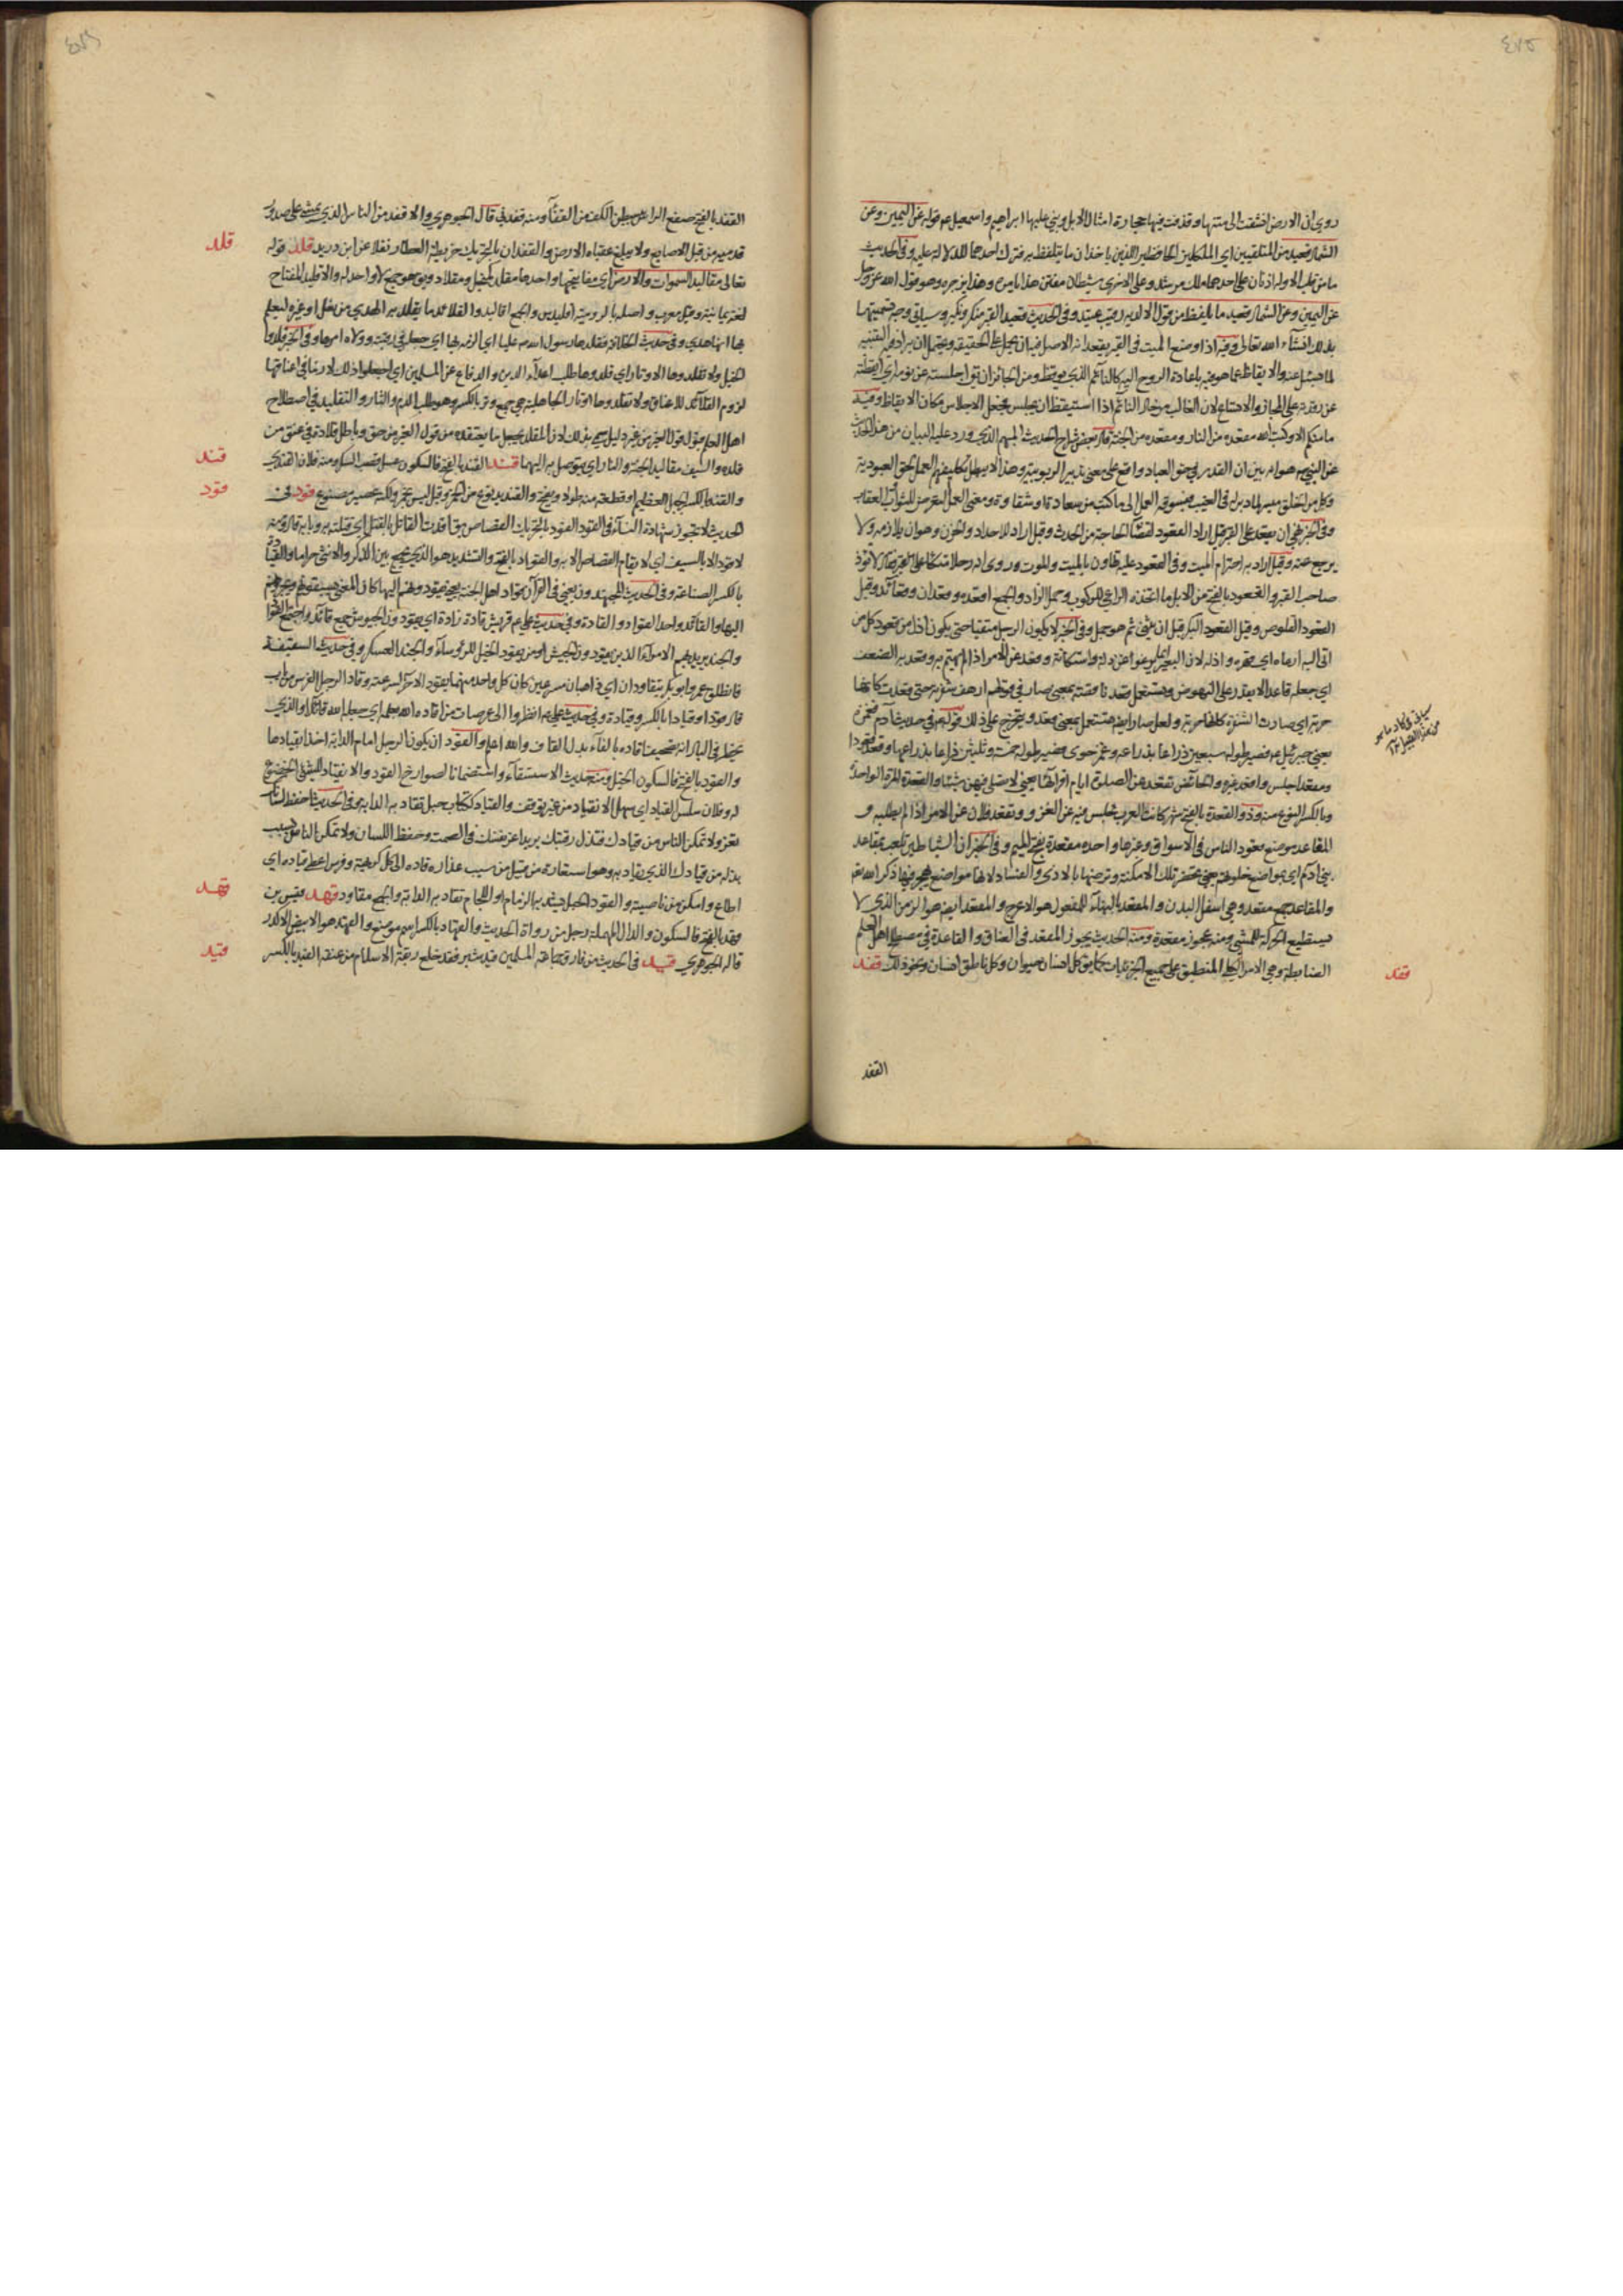 ٤٧٥
روي ان الارض انشقت الى منتهاها وقذفت فيها حجارة امثال الابل وبنى عليها ابراهيم واسمعيل ع قوله عن اليمين وعن
الشمال قعيد من المتلقيين اي الملكين الحافظين اللذين ياخذان ما يتلفظ به فترك احدهما لدلالة عليه وفي الحديث
ما من قلب الا وله اذنان على احدهما ملك مرشد وعلى الاخرى شيطان مفتن هذا يامره وهذا يزجره وهو قول الله عز وجل
عن اليمين وعن الشمال قعيد ما يلفظ من قول الا لديه رقيب عتيد وفي الحديث قعيدا القبر منكر ونكير وسياتي وجه تسميتهما
بذلك انشاء الله تعالى وفيه اذا وضع الميت في القبر يقعدانه الاصل فيه ان يحمل على الحقيقة ويحتمل ان يراد به التنبيه
لما يسئل عنه والايقاظ عما هو فيه باعادة الروح اليه كالنائم الذي يوقظ ومن الجائز ان تقول اجلسته عن نومه اي ايقظته
عن رقدته على المجاز والاتساع لان الغالب من حال النائم اذا استيقظ ان يجلس فجعل الاجلاس مكان الايقاظ وفيه
ما منكم الا وكتب الله مقعده من النار ومقعده من الجنة قال بعض شراح الحديث المبهم الذي ورد عليه البيان من هذا الحديث
عن النبي ص هو انه بين ان القدر في حق العباد واقع على معنى تدبير الربوبية وهذا لا يبطل تكليفهم العمل بحق العبودية
وكل من الخلق ميسر لما دبر له في الغيب فيسوقه العمل الى ما كتب من سعادة او شقاوة ومعنى العمل التعرض للثواب والعقاب
وفي الخبر نهي ان يقعد على القبر قيل اراد القعود لقضاء الحاجة من الحدث وقيل اراد للاحداد والحزن وهو ان يلازمه ولا
يرجع عنه وقيل اراد به احترام الميت وفي القعود عليه تهاون بالميت والموت وروي انه راى رجلا متكئا على القبر فقال لا تؤذ
صاحب القبر والقعود بالفتح من الابل ما اتخذه الراعي للركوب وحمل الزاد والجمع اقعدة وقعدان وقعائد وقيل
القعود القلوص وقيل القعود البكر قبل ان يثني ثم هو جمل وفي الخبر لا يكون الرجل متقيا حتى يكون اذل من قعود كل من
اتى اليه ارغاه اي قهره واذله لان البعير انما يرغو عن ذل واستكانة وقعد عن الامر اذا لم يهتم به وقعد به الضعف
اي جعله قاعدا لا يقدر على النهوض ويستعمل قعد ناقصة بمعنى صار في قولهم ارهف شفرته حتى قعدت كانها
حربة اي صارت الشفرة كانها حربة
سياتي في كاد ما هو
يعني جبرئيل ع فصير طوله سبعين ذراعا بذراعه وغمز حوى فصير طولها خمسة وثلثين ذراعا بذراعها وقعد قعودا
ومقعدا جلس واقعده غيره والحائض تقعد عن الصلوة ايام اقرائها يعني لا تصلي فيهن شيئا والقعدة المرة الواحدة
وبالكسر النوع منه وذو القعدة بالفتح شهر كانت العرب تجلس فيه عن الغزو وتقعد فلان عن الامر اذا لم يطلبه و
المقاعد موضع قعود الناس في الاسواق وغيرها واحده مقعدة بفتح الميم وفي الخبر ان الشياطين تلعب بمقاعد
بني آدم اي مواضع خلوتهم يعني تحضر تلك الامكنة وترصدها بالاذى والفساد لانها مواضع يهجر فيها ذكر الله تع
والمقاعد جمع مقعد وهي اسفل البدن والمقعد بالبناء للمفعول هو الاعرج والمقعد ايضا هو الزمن الذي لا
يستطيع الحركة للمشي ومنه عجوز مقعدة ومنه الحديث يجوز المقعد في العتاق والقاعدة في مصطلح اهل العلم
الضابطة وهي الامر الكلي المنطبق على جميع الجزئيات كما يق كل انسان حيوان وكل ناطق انسان ونحو ذلك قفد
قفد
القفد
القفد بالفتح صفع الراس ببطن الكف من القفا ومنه قفدني قاله الجوهري والاقفد من الناس الذي يمشي على صدور
قدميه من قبل الاصابع ولا يبلغ عقباه الارض والقفدان بالتحريك خريطة العطار نقلا عن ابن دريد قلد قوله
قلد
تعالى مقاليد السموات والارض اي مفاتيحها واحدها مقلد كمنجل ومقلاد ويق هو جمع لا واحد له والاقليد المفتاح
لغة يمانية وقيل معرب واصله بالرومية اقليدس والجمع اقاليد والقلائد ما يقلد به الهدي من نعل او غيره ليعلم
بها انها هدي وفي حديث الخلافة فقلدها رسول الله ص عليا اي الزمه بها اي جعلها في رقبته وولاه امرها وفي الخبر قلدوا
الخيل ولا تقلدوها الاوتار اي قلدوها طلب اعداء الدين والدفاع عن المسلمين اي اجعلوا ذلك لازما في اعناقها
لزوم القلائد للاعناق ولا تقلدوها اوتار الجاهلية هي جمع وتر بالكسر وهو طلب الدم والثار والتقليد في اصطلاح
اهل العلم قبول قول الغير من غير دليل سمي بذلك لان المقلد يجعل ما يعتقده من قول الغير من حق وباطل قلادة في عنق من
قلده والسيف مقاليد الجنة والنار اي يتوصل به اليهما قند القند بالفتح فالسكون عسل قصب السكر ومنه فلان القندي
قند
والقند بالكسر الجبل العظيم او قطعة منه طولا ويفتح والقنديد نوع من الخمر وقيل ليس بخمر ولكنه عصير مصنوع قود في
قود
الحديث لا تجوز شهادة النساء في القود القود بالتحريك القصاص يق اقدت القاتل بالقتيل اي قتلته به وبابه قال ومنه
لا قود الا بالسيف اي لا يقام القصاص الا به والقواد بالفتح والتشديد هو الذي يجمع بين الذكر والانثى حراما والقيادة
بالكسر الصناعة وفي الحديث المجتهدون يعني في القرآن قواد اهل الجنة
اليها والقائد واحد القواد والقادة وفي حديث علي ع قريش قادة زادة اي يقودون الجيوش جمع قائد
والجند يريد بهم الامراء الذين يقودون الجيش او من يقود الخيل للرؤساء والجند العسكر وفي حديث السقيفة
فانطلق عمر وابو بكر يتقاودان اي ذاهبان مسرعين كان كل واحد منهما يقود الآخر لسرعته وقاد الرجل الفرس من باب
قال قودا وقيادا بالكسر وقيادة وفي حديث علي ع انظروا الى عرصات من اقاده الله بعلمه اي جعله الله قائدا والذي
يخطر في البال انه تصحيف افاده بالفاء بدل القاف والله اعلم والقود ان يكون الرجل امام الدابة اخذا بقيادها
والقود بالفتح فالسكون الخيل ومنه حديث الاستسقاء واستظمانا لصوارخ القود والانقياد للشيء الخضوع
له وفلان سلس القياد اي سهل الانقياد من غير توقف والقياد ككتاب حبل تقاد به الدابة وفي الحديث احفظ لسانك
تعز ولا تمكن الناس من قيادك فتذل رقبتك يريد اعز نفسك في الصمت وحفظ اللسان ولا تمكن الناس بسبب
بذله من قيادك الذي يقاد به وهو استعارة من قبيل من سيب عذاره قاده الى كل كريهة وفرس اعطى قياده اي
اطاع وامكن من ناصيته والقود الحبل يشد به الزمام او اللجام تقاد به الدابة والجمع مقاود قهد قيس بن
قهد
قهد بالفتح فالسكون والدال المهملة رجل من رواة الحديث والقهاد بالكسر اسم موضع والقهد هو الابيض الاكدر
قاله الجوهري قيد في الحديث من فارق جماعة المسلمين قيد شبر فقد خلع ربقة الاسلام من عنقه القيد بالكسر
قيد